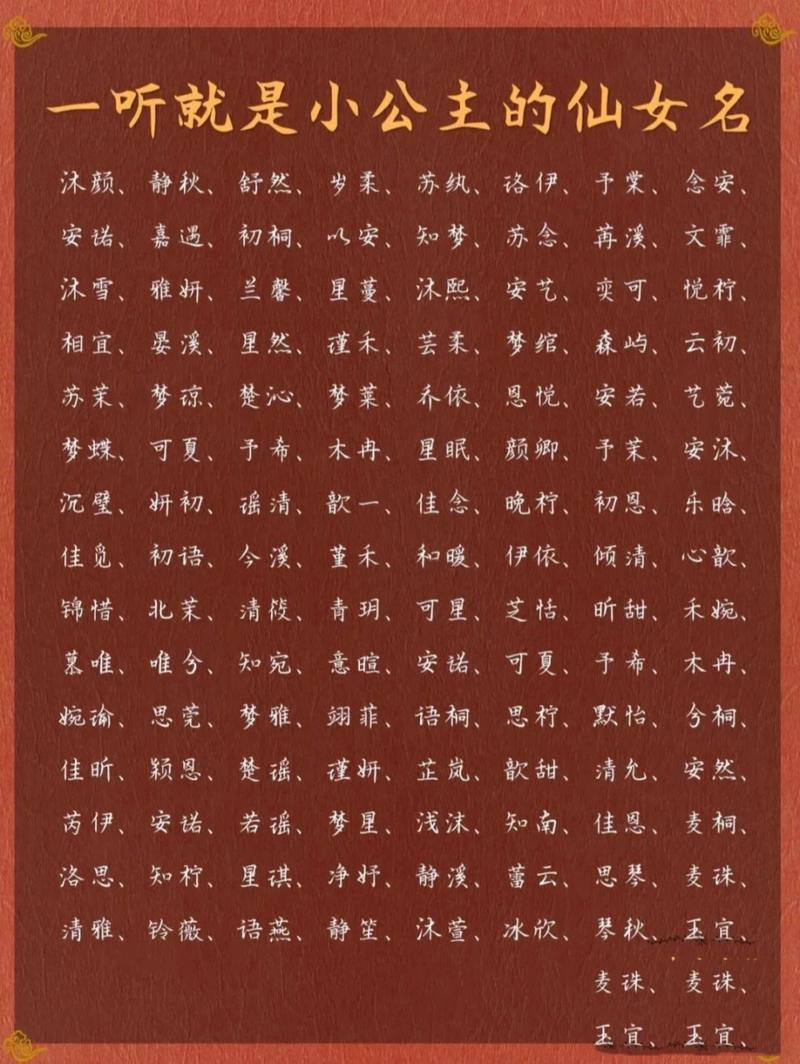 一听就是小公主的仙女名
沐颜、静秋、舒然、岁柔、苏纨、洛伊、予棠、念安、
安诺、嘉遇、初桐、以安、知梦、苏念、苒溪、文霏、
沐雪、雅妍、兰馨、星蔓、沐熙、安艺、奕可、悦柠、
相宜、晏溪、星然、瑾禾、芸柔、梦绾、森屿、云初、
苏茉、梦琼、楚沁、梦葉、乔依、恩悦、安若、艺菀、
梦蝶、可夏、予希、木冉、星眠、颜卿、予茉、安沐、
沉璧、妍初、谣清、歆一、佳念、晚柠、初恩、乐晗、
佳觅、初语、今溪、堇禾、和暖、伊依、倾清、心歆、
锦惜、北茉、清筱、青玥、可星、芝恬、昕甜、禾婉、
慕唯、唯兮、知宛、意暄、安诺、可夏、予希、木冉、
婉瑜、思莞、梦雅、翊菲、语桐、思柠、默怡、兮桐、
佳昕、颖恩、楚瑶、瑾妍、芷岚、歆甜、清允、安然、
芮伊、安诺、若瑶、梦星、浅沫、知南、佳恩、麦桐、
洛思、知柠、星琪、净妤、静溪、蕾云、思琴、麦珠、
清雅、铃薇、语燕、静笙、沐萱、冰欣、琴秋、玉宜、
麦珠、麦珠、
玉宜、玉宜、